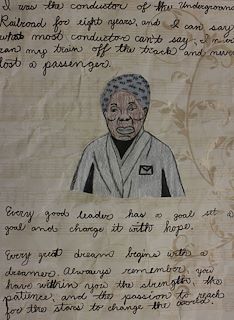 I was the conductor of the Underground
Railroad for eight years, and I can say
what most conductor can't say; I never
ran my train off the track and never
lost a passenger.
Every good leader has a goal set a
goal and charge it with hope.
Every great dream begins with a
dreamer. Always remember, you
have within you the strength, the
patience, and the passion to reach
for the stars to change the world.